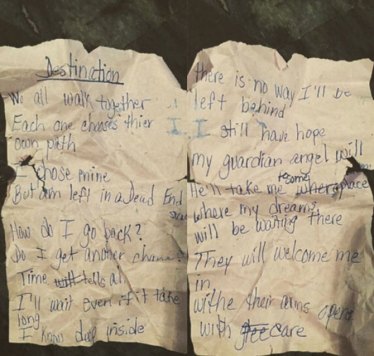 Destination
We all walk together
Each one choses thier
own path
I chose mine
But am left in a Dead End
How do I go back?
Do I get another chance?
Time will tells all
I'll wait even if it take
long
I know deep inside
there is no way I'll be
left behind
I I still have hope
my guardian angel will
He'll take me where
where my dreams
will be waiting there
They will welcome me
in
withe their arms opene
with care